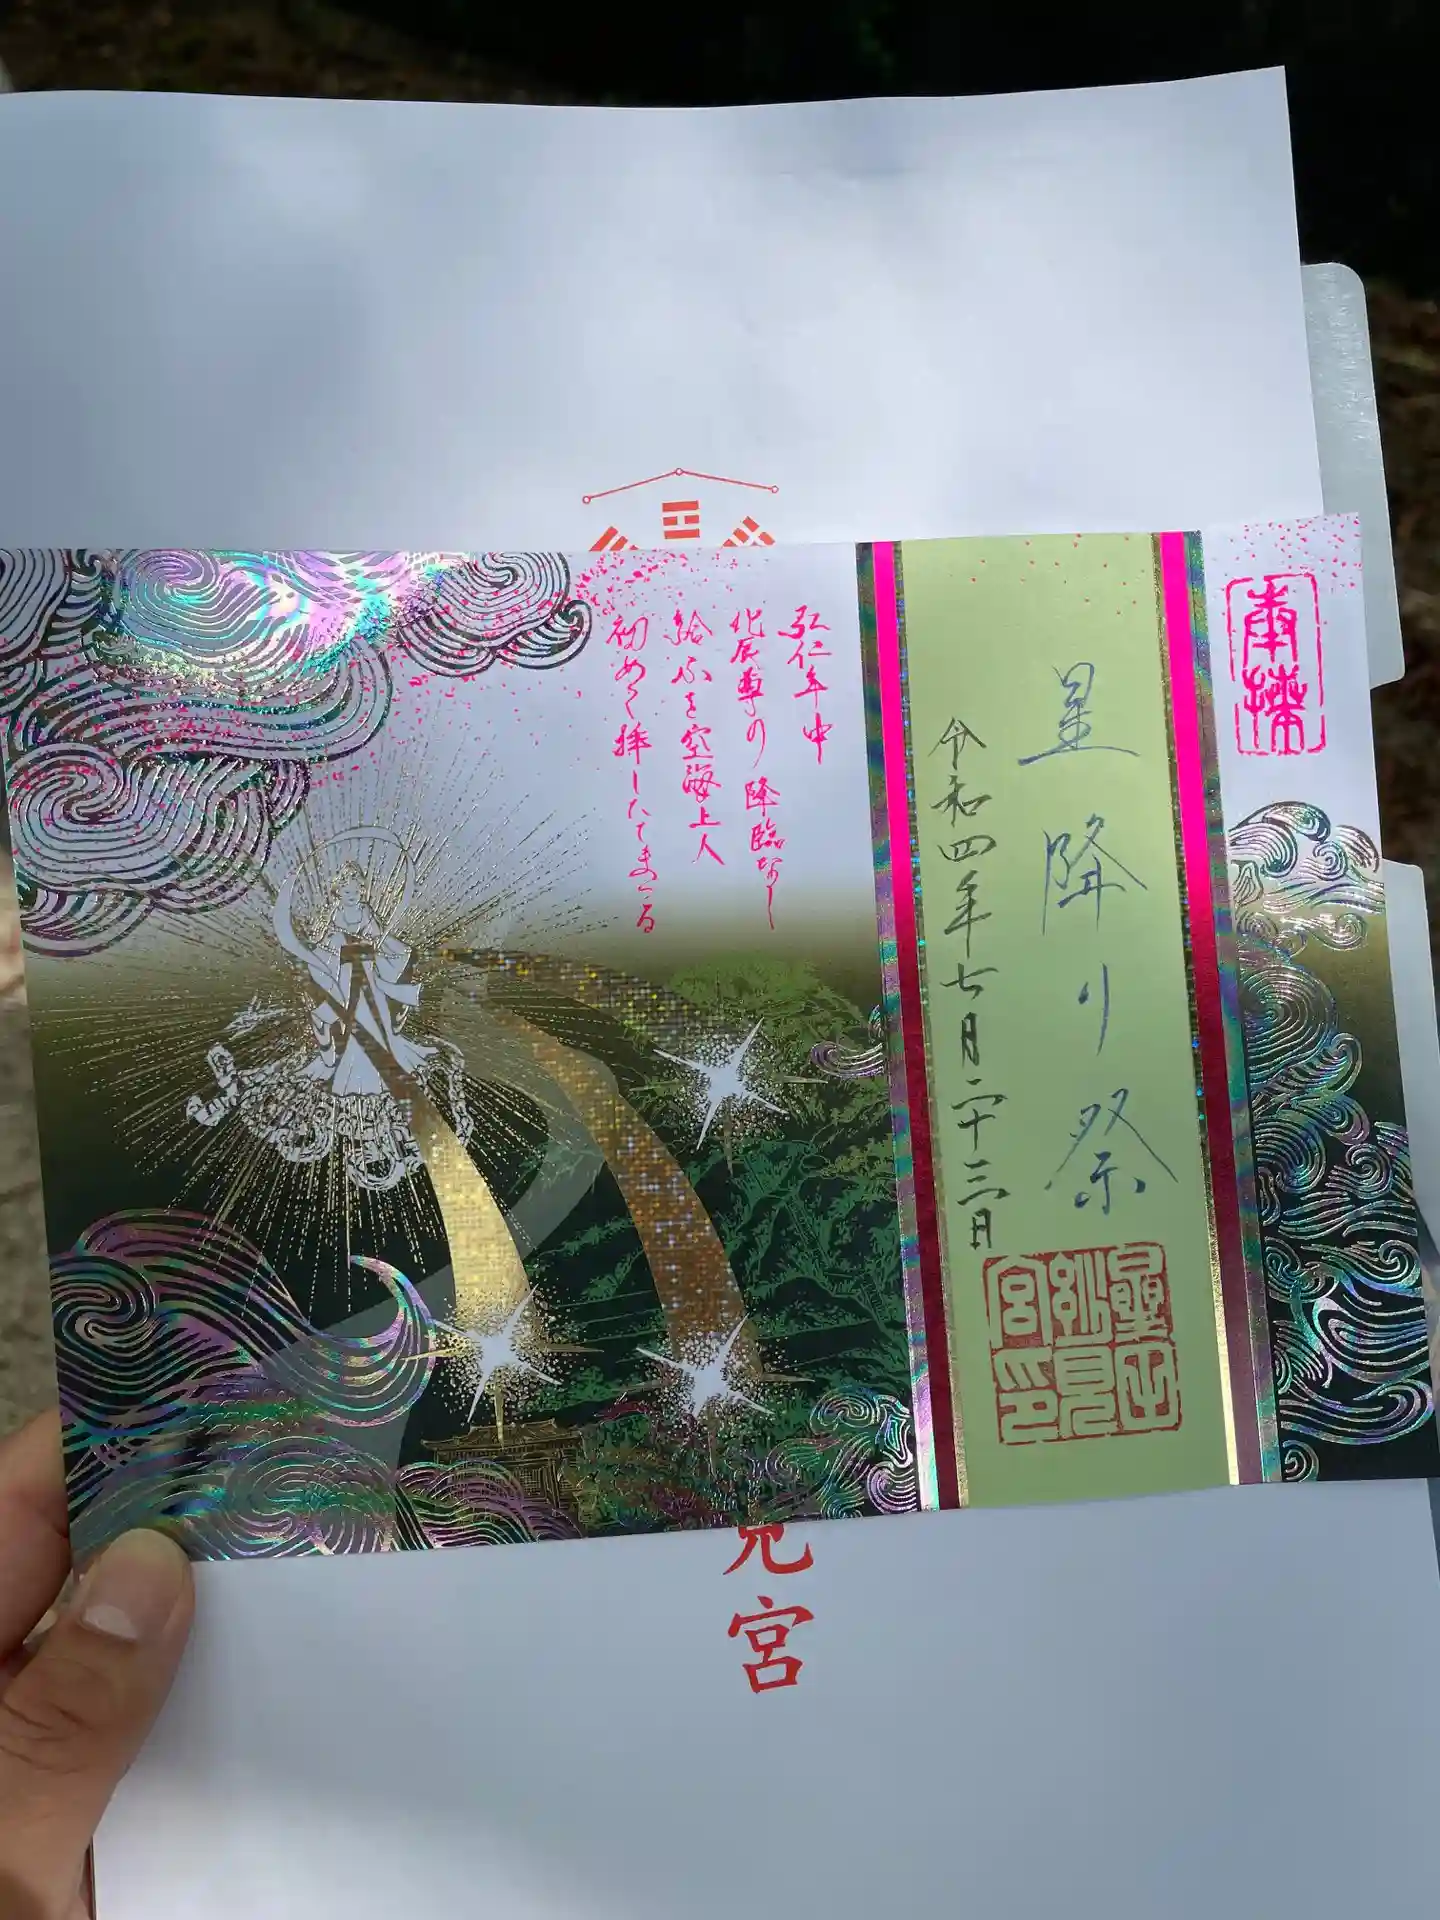 奉拝
星降り祭
令和四年七月二十三日
星田
妙見
宮印
弘仁年中
北辰尊の降臨なし
給ふを空海上人
初めて拝したてまつる
見宮